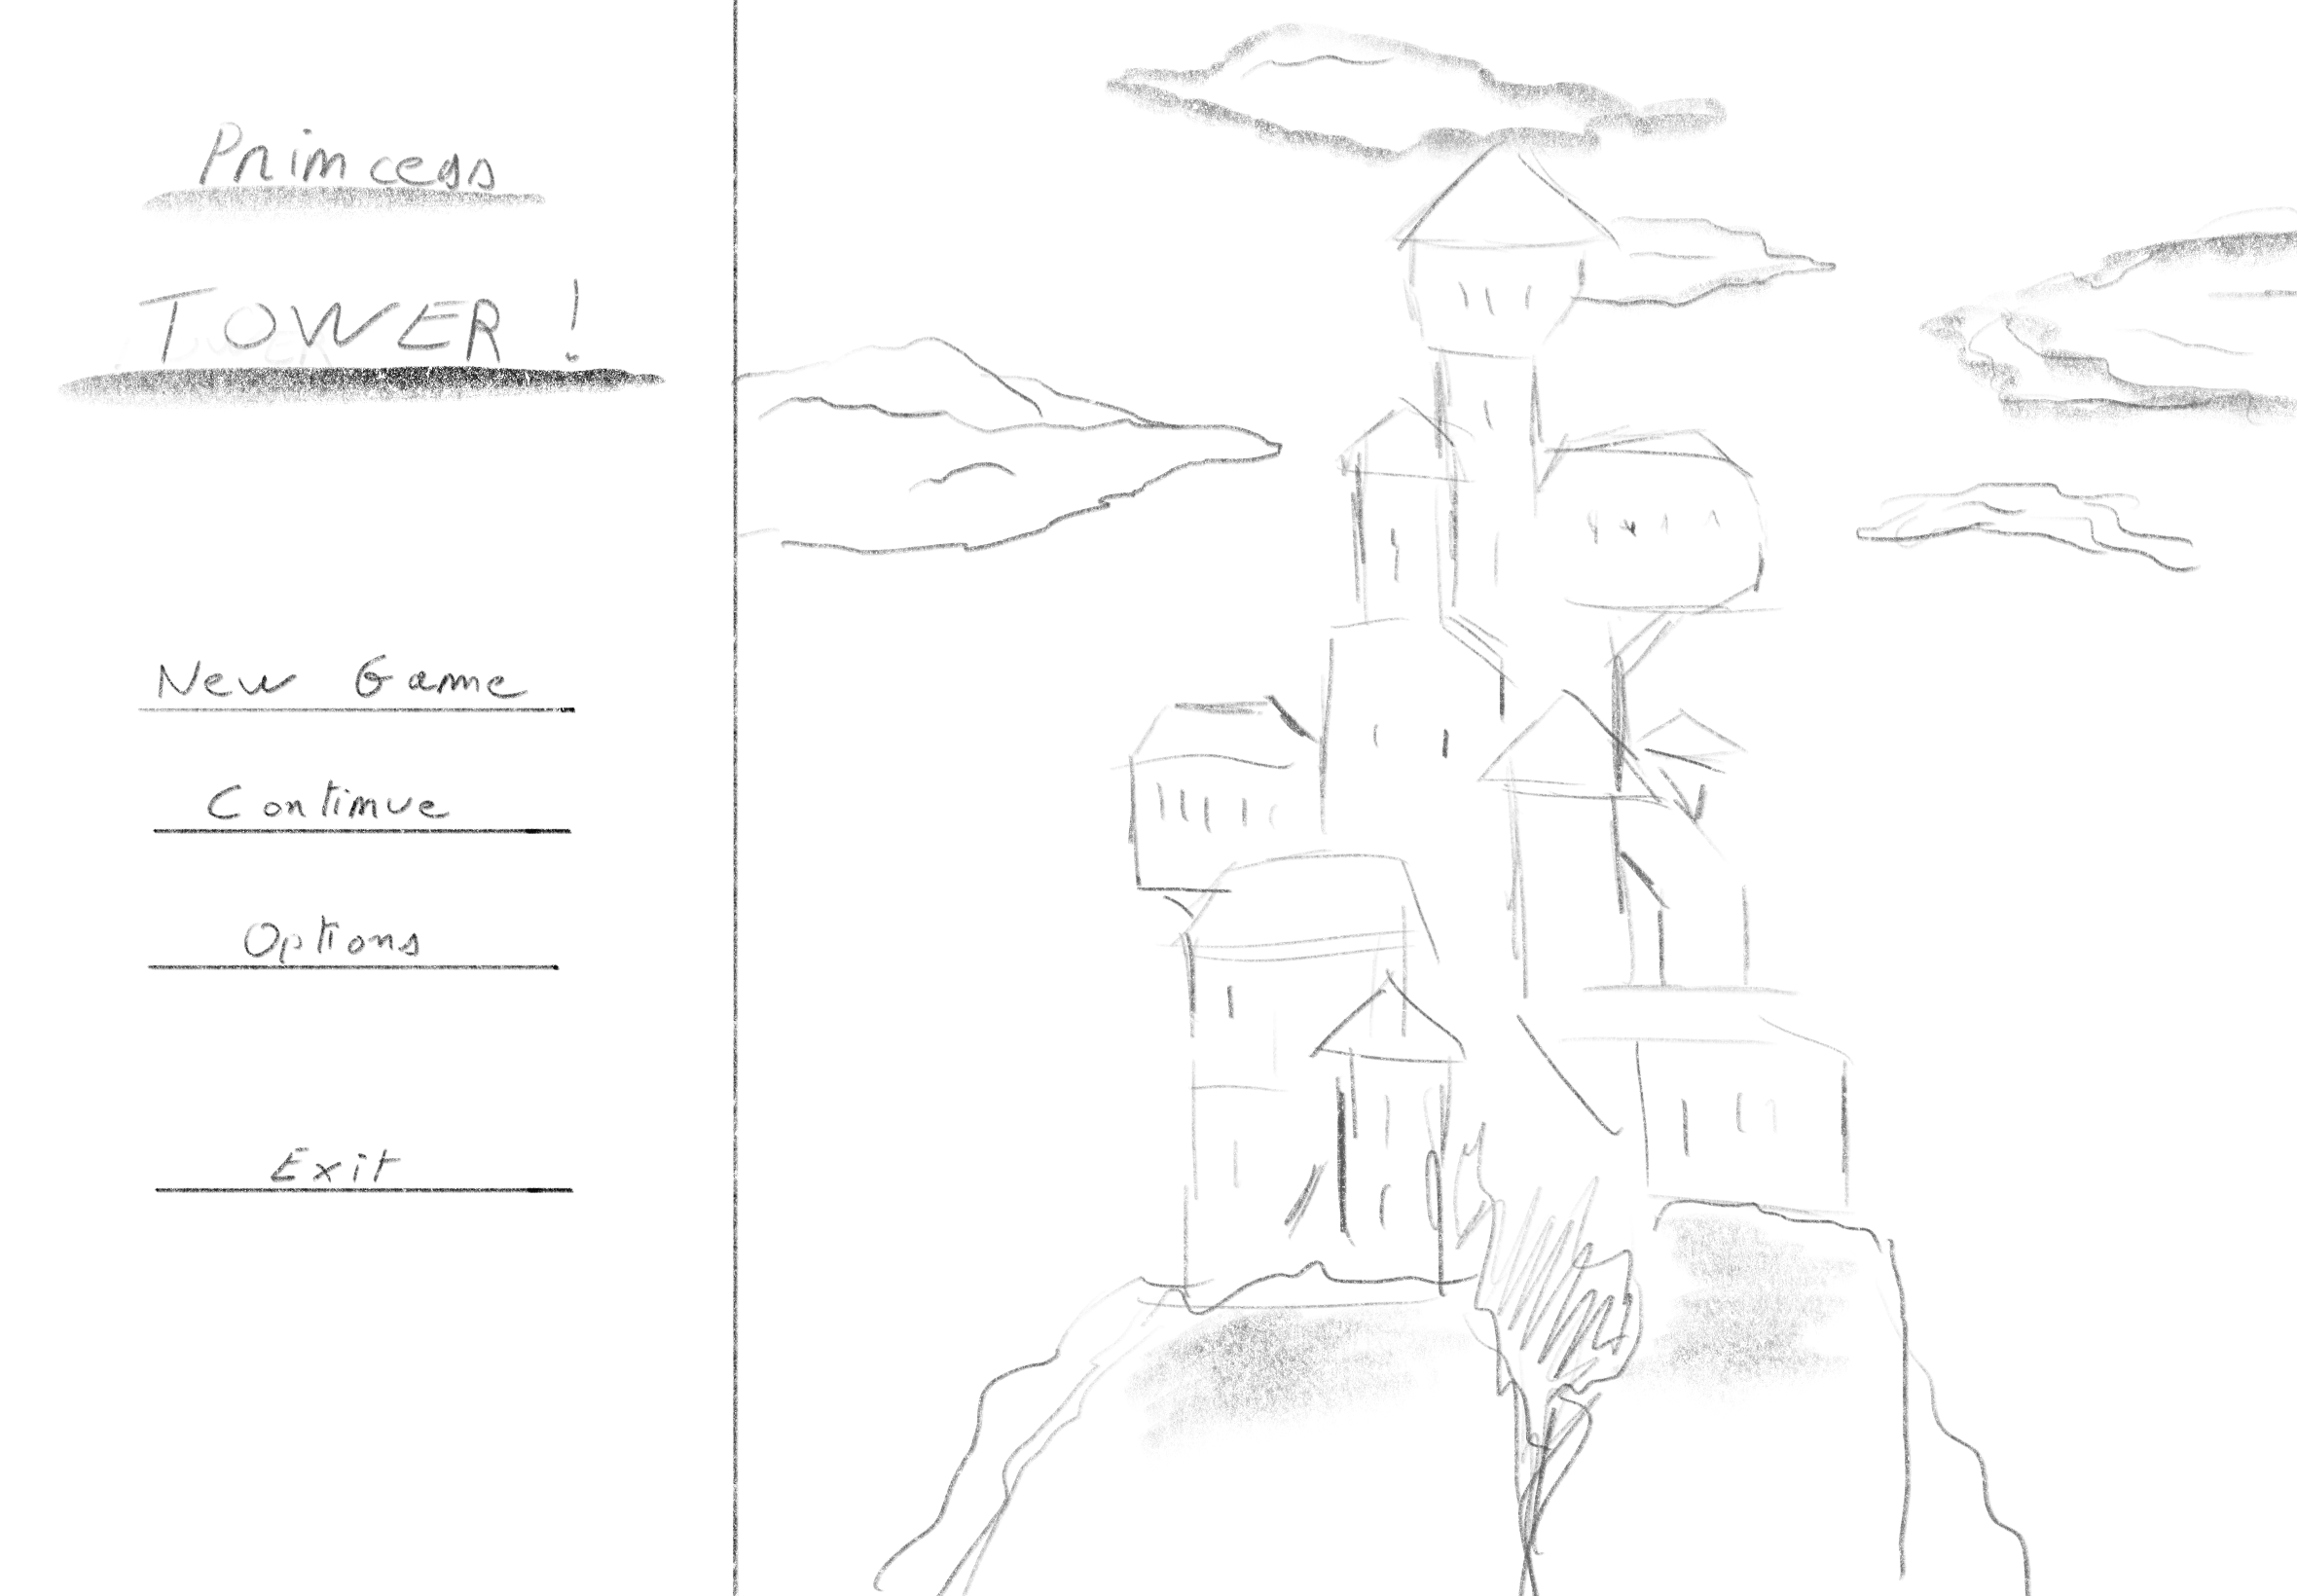 Princess
TOWER!
New Game
Continue
Options
Exit